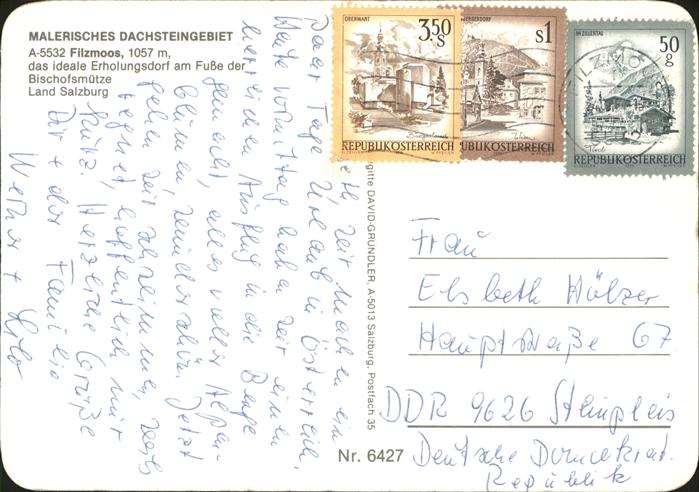 MALERISCHES DACHSTEINGEBIET
A-5532 Filzmoos, 1057 m,
das ideale Erholungsdorf am Fuße der
Bischofsmütze
Land Salzburg
OBERWART
3,50 S
Burgenland
REPUBLIK ÖSTERREICH
S1
Wien
REPUBLIK ÖSTERREICH
IM ZILLERTAL
50 g
Tirol
REPUBLIK ÖSTERREICH
FILZMO
wir machen ein
paar Tage Urlaub in Österreich.
Heute vormittag haben wir einen
Ausflug in die Berge
gemacht, alles voller Alpen-
blumen, wunderschön. Jetzt
gehen wir schwimmen,
regnet, hoffentlich nur
kurz. Herzliche Grüße
Dir + der Familie
Werner +
gitte DAVID-GRUNDLER, A-5013 Salzburg, Postfach 35
Nr. 6427
Frau
Elsbeth Hölzer
Hauptstraße 67
DDR 9626 Steinpleis
Deutsche Demokrat.
Republik